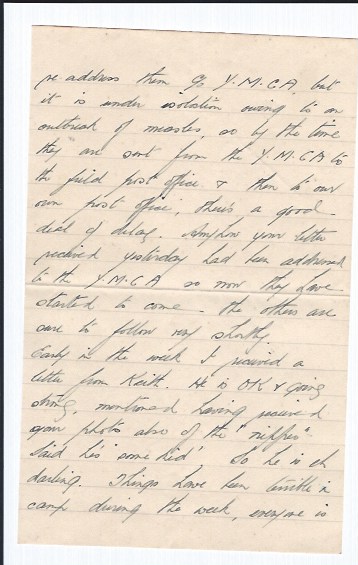 re-address them c/o Y.M.C.A. but
it is under isolation owing to an
outbreak of measles, so by the time
they are sent from the Y.M.C.A to
the field post office & then to our
own post office, there's a good
deal of delay. Anyhow your letter
received yesterday had been addressed
to the Y.M.C.A so now they have
started to come - the others are
sure to follow very shortly.
Early in the week I received a
letter from Keith. He is OK & going
strong, mentioned having received
your photo also of the "nipper"
said he's some kid! So he is eh
darling. Things have been terrible in
camp during the week, everyone is